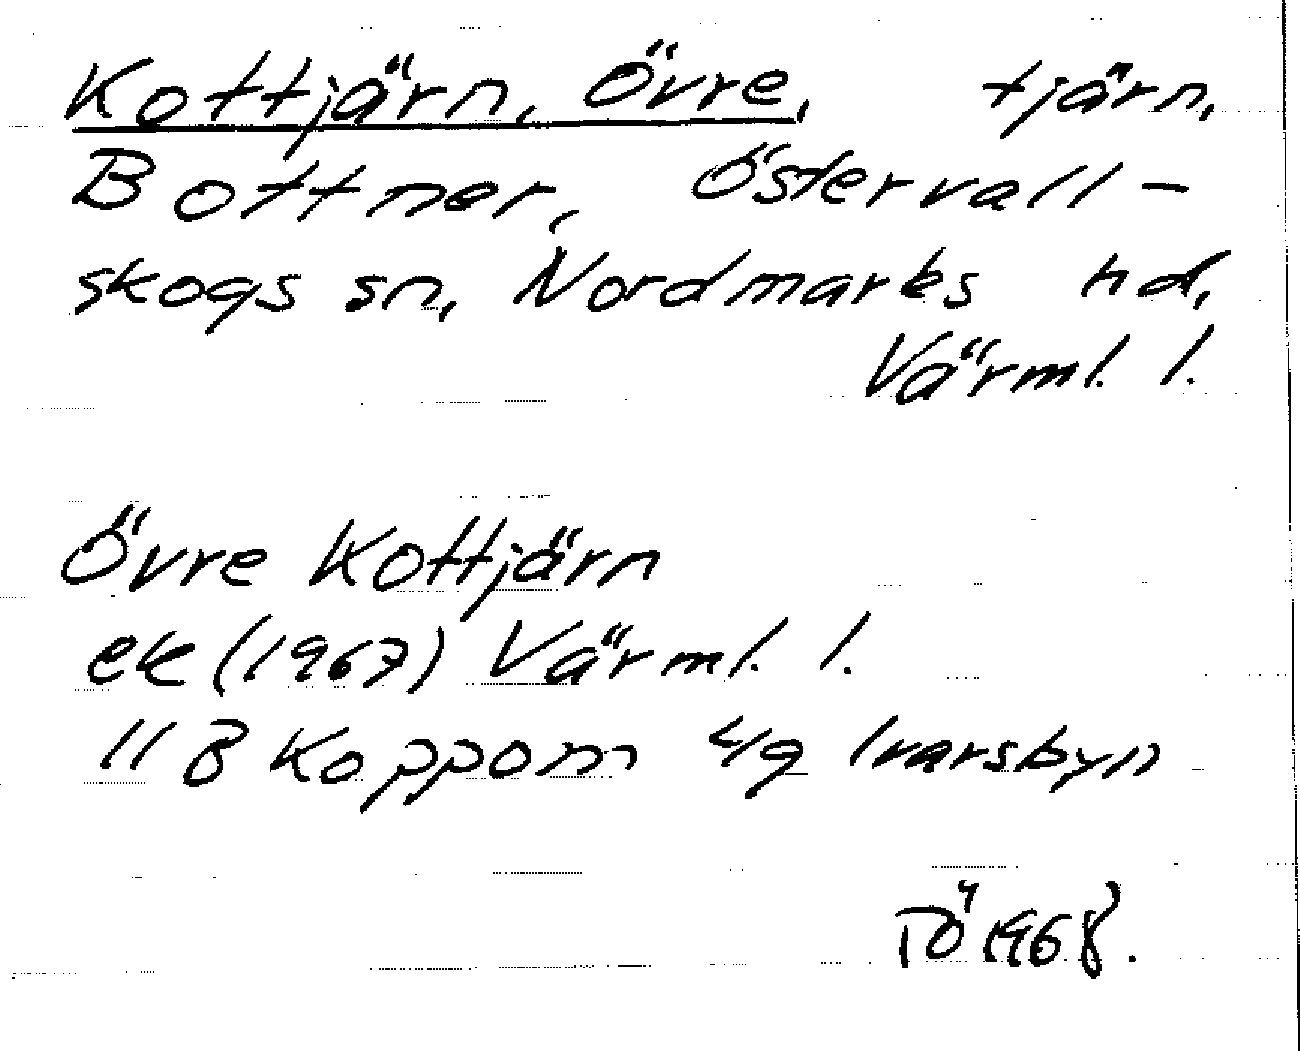 Kottjärn, Övre, tjärn,
Bottner, Östervall-
skogs sn, Nordmarks hd,
Värml. l.
Övre Kottjärn
ek (1967) Värml. l.
11 B Koppom 4g Ivarsbyn
TÖ 1968.